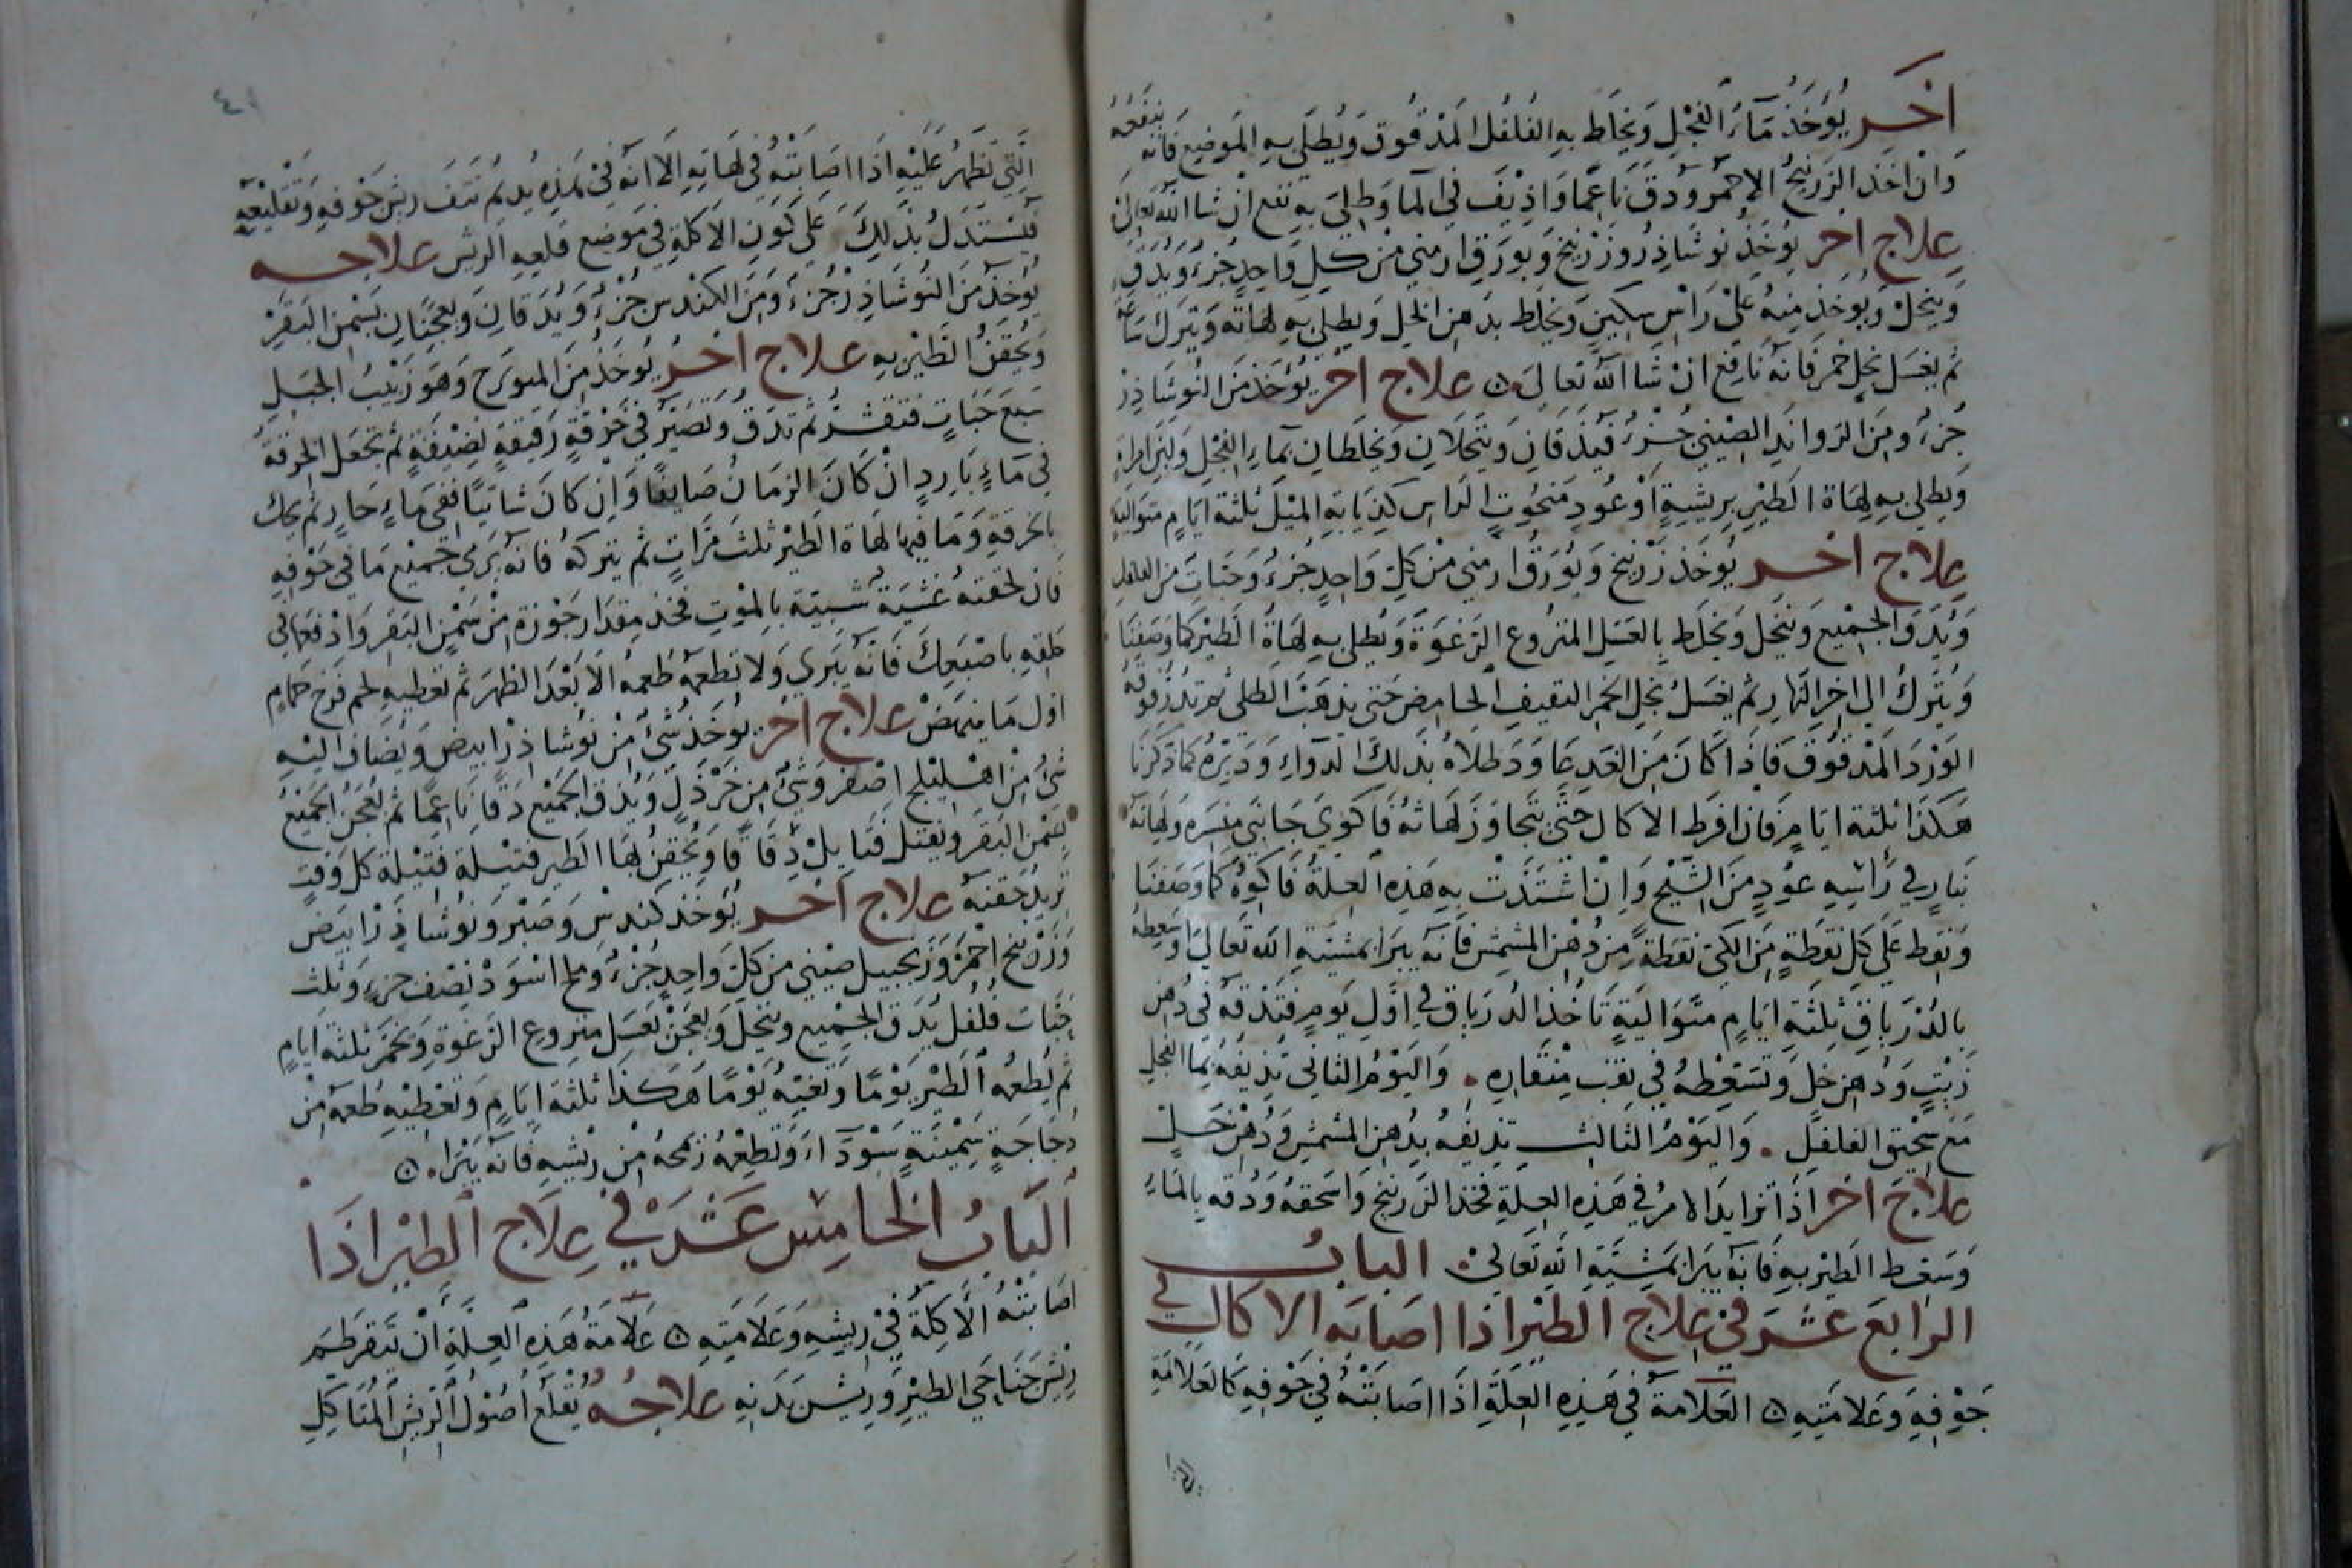 اخر يُوخَذُ مَآءُ الفُجْلِ وَيُخلَط بِهِ الفُلفُل المَدْقُوق وَيُطلَى بِهِ المَوضِع فَانه ينفعه
وَان اخذ الزرنيخُ الاحْمَر وَدُقَّ نَاعِمًا وَاذِيْفَ فِي المآ وَطِلىَ بِهِ نفع انْ شا الله تعالىَ
عِلاج اخر يوُخَذ نوشَاذِر وزرنيخ وَبورَق ارمني منْ كل وَاحِدٍ جُزء وَيُدَق
وينخلْ وَيوُخَذ منهُ عَلىْ رَاسِ سِكينٍ وَيخلط بدَهن الخل وَيطلى بهِ لهَاته وَيتركَ سَاعة
ثم يغسَل بخل خمر فَانه نَافِع انْ شَا الله تعالىَ ۞ عِلاج اخر يُؤخَذ منَ النوشَاذِرْ
جُزءُ ومنَ الروانَدِ الصّيْنيِ جُزءُ فَيُدَقانِ وَينخَلانِ وَيخلَطانِ بمآءِ الفجْلِ وَلبَن امراةٍ
وَيطلى بهِ لهَاة الطَيْرِ بِريشَةٍ اوْ عُودٍ مَنحُوتِ الرَاسِ كذبَابَةِ المِيْل ثلثة ايَامٍ متوَاليَة
عِلاج اخر يُوخَذ زرْنيخ وَبُوْرَق ارمني منْ كل وَاحِدٍ جُزءُ وَحبَات من الفلفل
وَيُدَق الجَمْيع وَينخل وَيخلَط بِالعَسَل المنزُوع الرَغوَة وَيُطلى بهِ لهَاةُ الطَيْر كمَا وَصَفنَا
وَيُترَكُ الى اخِر النهَارِ ثم يغسَلُ بخل الخمر الثقيف الحَامِض حَتى يذهَبَ الطلى ثم تذُر فوقه
الوَرْدَ المَدْقُوق فَاذَا كَانَ مِنَ الغَدِ عَاوَدَ طلاَهُ بذَلكَ الدوَاءِ وَدَبّرهُ كمَا ذكرنَا
هَكذَا ثلثة ايَامٍ فَان افرَط الاكال حَتىَّ يتجاوَزَ لهَاتهُ فَاكوىِ جَانبَي منسَره وَلهَاته
بنَارٍ في رَاسِهِ عوُدٍ منَ الشّيْحِ وَاِنْ اشتدَتْ بهِ هَذِهِ العِلةُ فَاكوُهُ كما وَصَفنَا
وَنقِط عَلى كلِ نقطَةٍ منَ الكىّ نقطَة مِن دُهْن المشمِش فَانه يبرَا بمشيَةِ الله تعَالى اوَ سعِطهُ
بالدُرْيَاقِ ثلثَةِ ايَامٍ متَوَاليَةٍ تَاخُذ الدُرْيَاق في اوَّلِ يَومٍ فتَذقهُ في دُهن
زَيْتٍ وَدُهن خل وَتسَعِطهُ في نقب منقارِه . وَاليَوْمُ الثاني تذيفهُ بِما الفجلِ
مَعَ سَحيق الفلفل . وَاليَوْمُ الثَالِث تذيفهُ بدُهنِ المشمشِ وَدُهْن خَل
عِلاج اخر اذَا تزايدَ الامرُ في هَذِهِ العِلة فخذ الزَرنيخ وَاسْحقهُ وَدُقهِ بالمَاءِ
وَسَعِط الطَيْر بهِ فَانه يبرَا بمَشيَةِ الله تَعَالى . البَابُ
الرَابعَ عَشَرَ في عِلاج الطَيْر اذا اصَابهُ الاكال في
جَوْفِهِ وَعَلامَتِهِ ۞ العَلامَة في هَذِهِ العِلةِ اذَا اصَابَتْهُ في جَوْفهِ كالعَلامَةِ
التي
٤١
التي تظهَرُ عَليْهِ اذَا اصَابَتْهُ في لهَاتهِ الَا انهُ في هَذِهِ يُدِيمُ نتفَ ريشِ جَوْفهِ وَتقليْعَه
فيُسْتَدَلُ بذَلِكَ عَلى كَوْنِ الاكلةِ في مَوضع قلعِهِ الريش عِلاجه
يُوخذ مَن النُوشَاذِرْ جُزءُ وَمِنَ الكندس جُزْءُ وَيُدَقانِ وَيعجَنانِ بسَمن البَقر
وَيحقنُ الطَيْر بهِ عِلاج اخرُ يُوخَذُ مِنَ الميوَيزج وَهوَ زَبيْبُ الجَبَلِ
سَبعَ حَبَاتٍ فتقشرْ ثمَ تدَق وَتصَيَرْ في خرْقةٍ رَقيقةٍ نضِيْفَةٍ ثم تجعَل الخرقةَ
في مآءٍ بَارِدٍ انْ كانَ الزمَانُ صَايفًا وَاِن كانَ شاتيًا ففي مَاءٍ حَارٍ ثم يحك
بالخرقةِ وَمَا فيهَا لهَاة الطَيْر ثلث مَرَاتٍ ثم يتركهُ فانه يَرْمي جميْع مَا في جَوْفهِ
فان لحقته غَشيَة شَبيْهَة بالموْتِ فخذ مِقدَار جَوْزة مِنْ سَمْنِ البقر وَادْفعهَا في
حَلقِهِ باصْبعِك فَانهُ يَبرَي وَلا تطعمه طعمه الا بَعْدَ الظهر ثم تعطيهِ لحم فَرخ حَمامٍ
اوَل مَا ينهَضْ عِلاج اخر يُوخَذ شئُ مِنْ نُوشَاذِرْ ابيض وَيضَاف اليْهِ
شئُ مِنْ اهْليلج اصْفر وَشئُ مِن خَرْدَل وَيُدَق الجَميْع دَقا نَاعِمًا ثم يُعجَن الجَميْعُ
بسَمن البَقر وَيفتل فَتايلْ دِقاقا وَيُحْقنُ بهَا الطَير فتيْلة فَتيْلة كل وَقتٍ
تريْدُ حَقنَه عِلاج اخر يُوخَذ كندسْ وَصَبْر وَنوُشَاذرْ ابيَض
وَزرْنيخ احْمَرْ وَزنجبيل صيْني من كل وَاحِدٍ جُزْءُ وَملح اسْوَدْ نِصْف جزءٍ وَثلث
حَبَّات فلفل يُدَق الجميع وَينخلَ وَيعجَنْ بعَسَل منزوع الرَغوَةِ وَيخمَّر ثلثة ايَامٍ
ثم يُطعمُه الطَيْر يَوْمًا وَتغبْهُ يَوْمًا هَكذَا ثلثَة ايَامٍ وَتعْطيْهِ طعمهُ مِنْ
دجَاجَةٍ سَمْينَةٍ سَوْدَآء وَتطعِمُهُ زمَّحهُ مِنْ ريْشِهِ فَانهُ يَبْرَاه ۞
البَابُ الخامِسَ عَشَرَ في عِلاج الطَيْر اذَا
اصَابَتْهُ الاكِلةُ في رِيشِهِ وَعَلامَتِهِ ۞ عَلامَةُ هَذِهِ العِلةِ انْ يَتقرطَم
ريْش جَنَاحَي الطَيْرِ وَريْش بَدَنِهِ عِلاجُهُ يُقلعُ اصُوْلُ الرّيْشِ المُتَاكِلِ